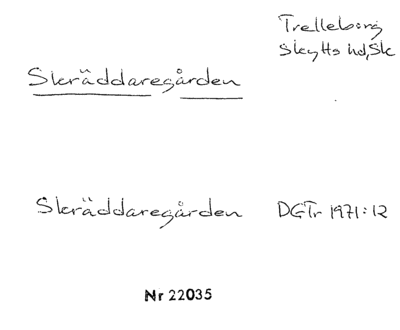 Trelleborg
Skytts hd, Sk
Skräddaregården
Skräddaregården DGTr 1971:12
Nr 22035